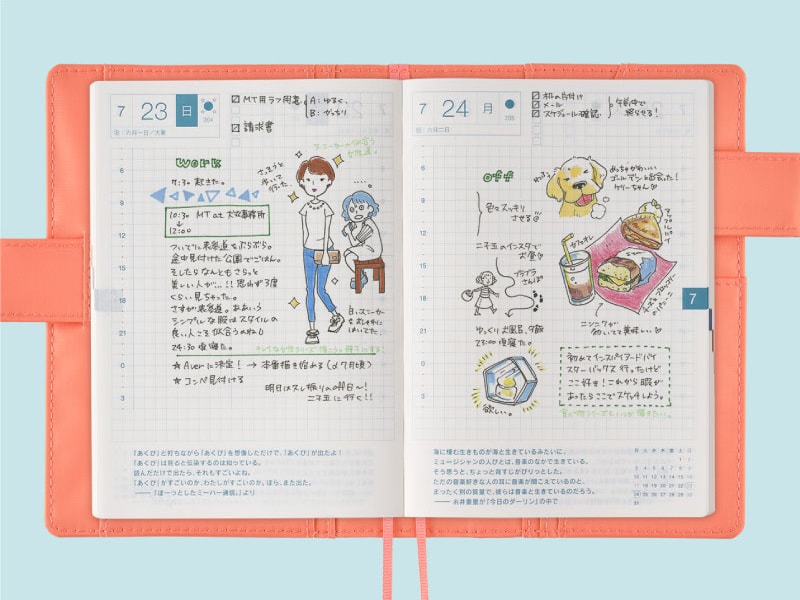 7 23 日
204
旧/六月一日/大暑
MT用ラフ用意
A：ゆるく、
B：がっちり
請求書
work
7:30 起きた。
10:30 MT at 事務所
↓
12:00
ついでに表参道をぶらぶら。
途中見付けた公園でごはん。
そしたらなんともさらっと
美しい人が…!! 思わず3度
くらい見ちゃった。
さすが表参道。ああいう
シンプルな服はスタイルの
良い人こそ似合うのね
24:30 頃寝た。
さっそうと
歩いて
行った
スニーカーの似合う
女性達。
白いスニーカー
をおしゃれに
はいてた。
☆ Averに決定！ → 本番描き始める
☆ コンペ見付ける
明日は久し振りのoff日〜！
二子玉に行く!!
6
9
12
15
18
21
0
3
「あくび」と打ちながら「あくび」を想像しただけで、「あくび」が出たよ！
「あくび」は見ると伝染するのは知っている。
読んだだけで出たら、それもすごいよね。
「あくび」がすごいのか、わたしがすごいのか。ほら、また出た。
——『ぼーっとしたミーハー通信。』より
7 24 月
205
旧/六月二日
机の片付け
メール
スケジュール確認
午前中で
終らせる！
off
色々スッキリ
させる
めっちゃかわいい
ゴールデンと出会った！
ケリーちゃん
二子玉のインスタで
お昼
ブラブラ
さんぽ
カフェオレ
アップルパイ
ニンニクが
効いてて美味しい
ゆっくりお風呂、夕飯
23:00 頃寝た。
欲しい。
初めてインスパイアードバイ
スターバックス行ったけど
ここ好き！これから暇が
あったらここでスケッチしよう。
6
9
12
15
18
21
0
3
7
海に棲む生きものが海と生きているみたいに、
ミュージシャンの人びとは、音楽のなかで生きている。
そう思うと、ちょっと背すじがぴりっとした。
ただの音楽好きな人の耳に音楽が聞こえているのと、
まったく別の質量で、彼らは音楽と生きているのだろう。
——糸井重里が『今日のダーリン』の中で
月 火 水 木 金 土 日
1 2
3 4 5 6 7 8 9
10 11 12 13 14 15 16
17 18 19 20 21 22 23
24 25 26 27 28 29 30
31